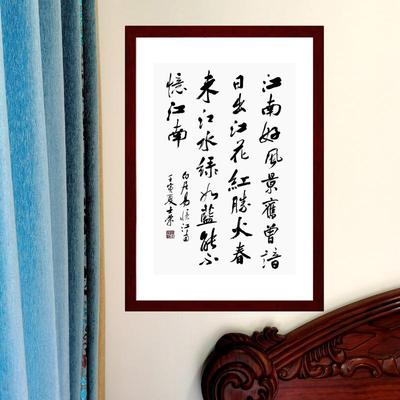 江南好風景舊曾諳
日出江花紅勝火春
来江水緑如藍能不
憶江南
白居易憶江南
壬寅夏士